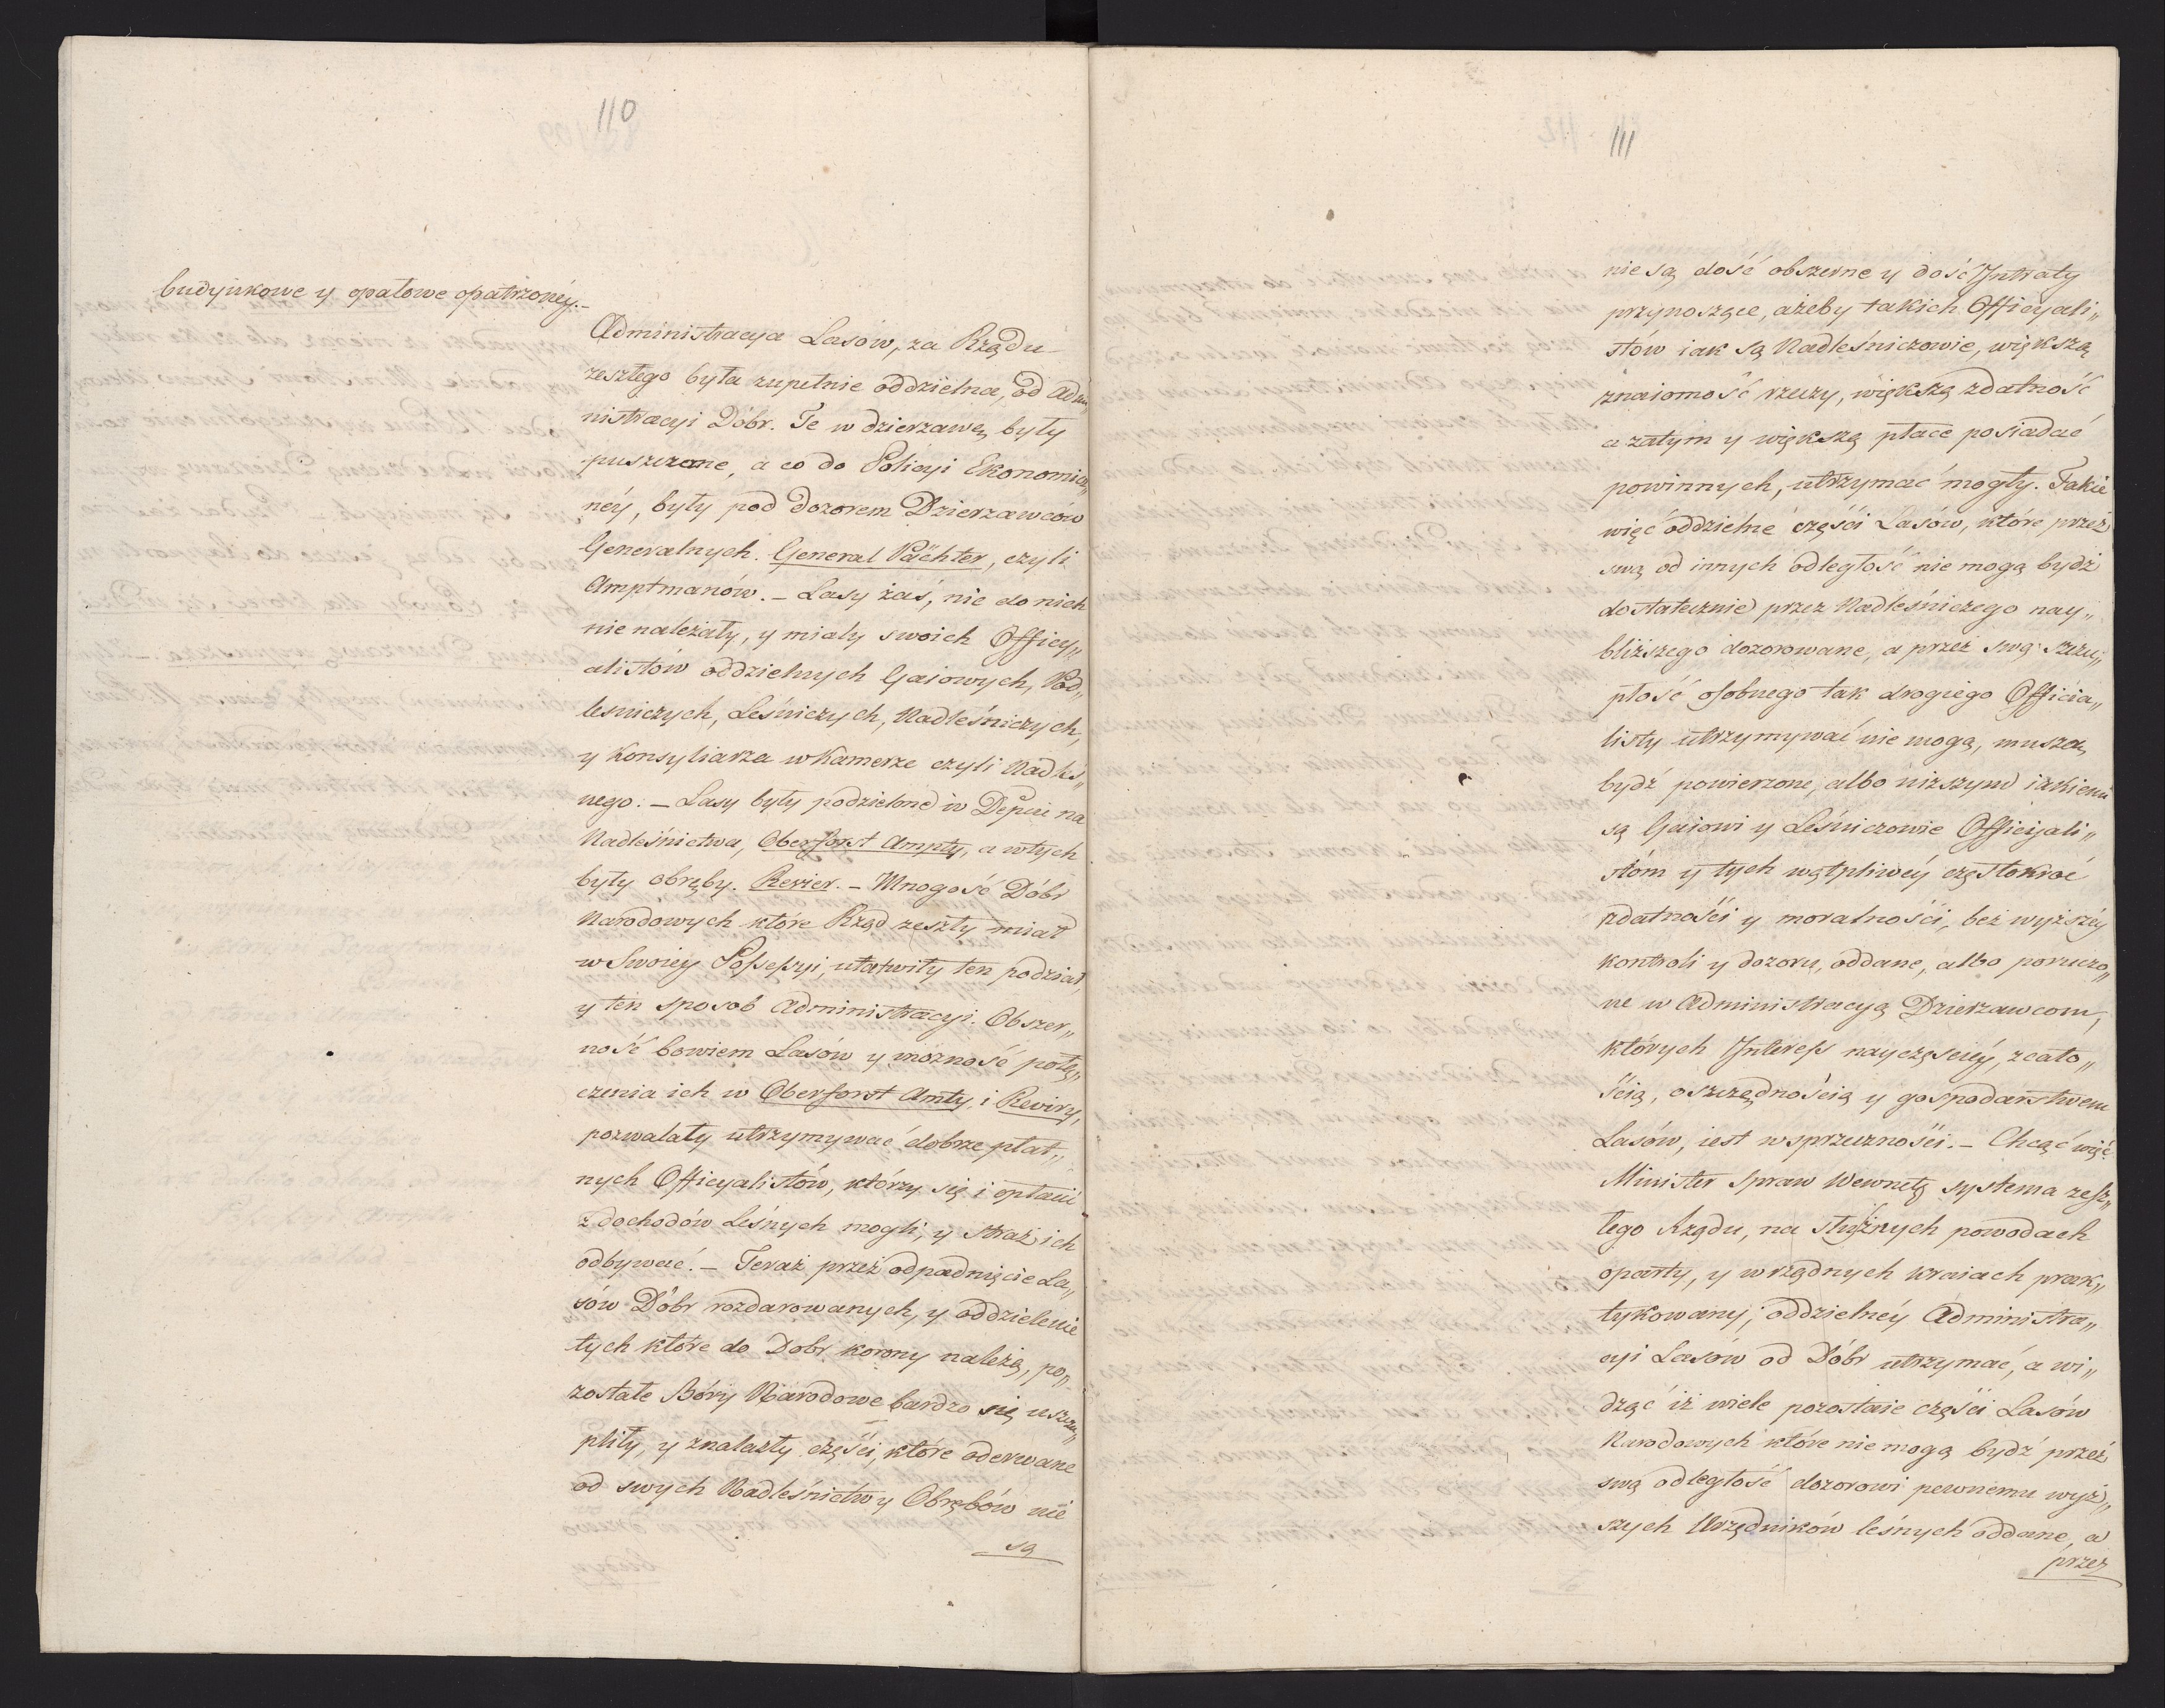 110
budynkowe y opałowe opatrzonéy.–
Administracya Lasów, za Rządu
zeszłego była zupełnie oddzielna, od Admi„
nistracyi Dóbr. Te w dzierzawę były
puszczone, a co do Policyi Ekonomicz„
néy, były pod dozorem Dzierzawców
Generalnych. General Pächter, czyli
Amptmanów. – Lasy zaś, nie do nich
nie należały, y miały swoich Officy„
alistów oddzielnych Gaiowych, Pod„
lesniczych, Leśniczych, Nadleśniczych,
y Konsyliarza w Kamerze czyli Nadleś„
nego. – Lasy były podzielone w Depcie na
Nadleśnictwa, Oberforst Ampty, a w tych
były obręby. Revier. – Mnogość Dóbr
Narodowych które Rząd zeszły miał
w Swoiey Possessyi, ułatwiły ten podział,
y ten sposob Administracyi. Obszer„
ność bowiem Lasów y możność połą„
czenia ich w Oberforst Amty, i Reviry,
pozwalały utrzymywać dobrze płat„
nych Officyalistów, którzy się i opłacić
z dochodów Leśnych mogli, y straż ich
odbywać. – Teraz przez odpadnięcie La„
sów Dóbr rozdarowanych, y oddzielenie
tych które do Dobr korony należą, po„
zostałe Bóry Narodowe bardzo się uszczu„
pliły, y znalazły części, które oderwane
od swych Nadleśnictw y Obrębów nie
są
111
nie są dość obszerne y dość Intraty
przynoszące, ażeby takich Officyali„
stów iak są Nadleśniczowie, większą
znaiomość rzeczy, większą zdatność
a zatym y większą płace posiadać
powinnych, utrzymać mogły. Takie
więc oddzielne części Lasów, które przez
swą od innych odległość nie mogą bydź
dostatecznie przez Nadleśniczego nay„
bliższego dozorowane, a przez swą szczu„
płość osobnego tak drogiego Officia„
listy utrzymywać nie mogą, muszą
bydź powierzone, albo niższym iakiemi
są Gaiowi y Leśniczowie Officyali„
stóm y tych wątpliwéy częstokroć
zdatności y moralności, bez wyższéy
kontroli y dozoru, oddane, albo poruczo„
ne w Administracyą Dzierzawcom,
których Interess nayczęściéy, z cało„
ścią, oszczędnością y gospodarstwem
Lasów, iest w sprzeczności. – Chcąc więc
Minister Spraw Wewnętz systema zesz„
łego Rządu, na słusznych powodach
oparty, y w rządnych kraiach prak„
tykowany, oddzielnéy Administra„
cyi Lasów od Dóbr utrzymać, a wi„
dząc iż wiele pozostaie części Lasów
Narodowych które nie mogą bydź przez
swą odległość dozorowi pewnemu wyż„
szych Urzędników leśnych oddane, a
przez